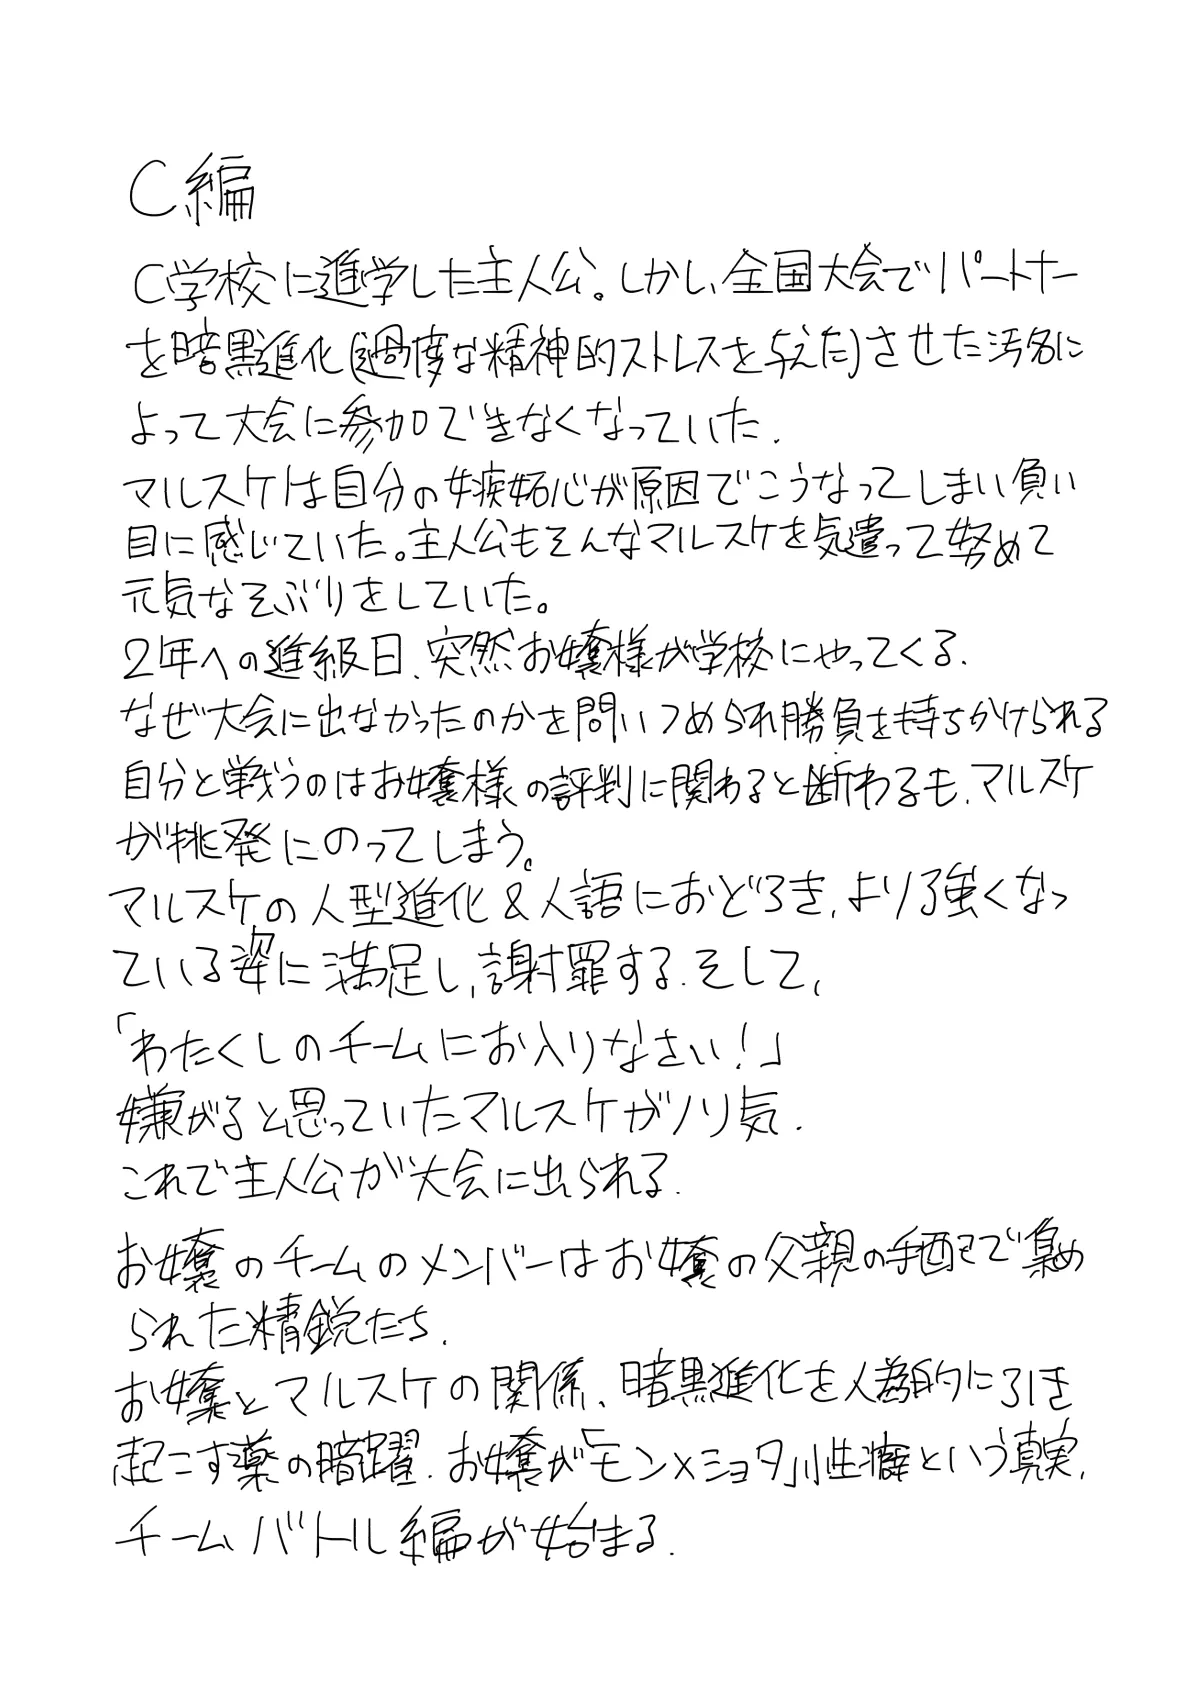 C編
C学校に進学した主人公。しかし、全国大会でパートナー
を暗黒進化(過度な精神的ストレスを与えた)させた汚名に
よって大会に参加できなくなっていた.
マルスケは自分の嫉妬心が原因でこうなってしまい負い
目に感じていた。主人公もそんなマルスケを気遣って努めて
元気なそぶりをしていた。
2年への進級日、突然お嬢様が学校にやってくる.
なぜ大会に出なかったのかを問いつめられ勝負を持ちかけられる
自分と戦うのはお嬢様の評判に関わると断わるも、マルスケ
が挑発にのってしまう。
マルスケの人型進化&人語におどろき、より強くなっ
ている姿に満足し、謝罪する.そして、
「わたくしのチームにお入りなさい!」
嫌がると思っていたマルスケがノリ気.
これで主人公が大会に出られる.
お嬢のチームのメンバーはお嬢の父親の手配で集め
られた精鋭たち.
お嬢とマルスケの関係、暗黒進化を人為的に引き
起こす薬の暗躍.お嬢が「モン×ショタ」性癖という真実、
チームバトル編が始まる.